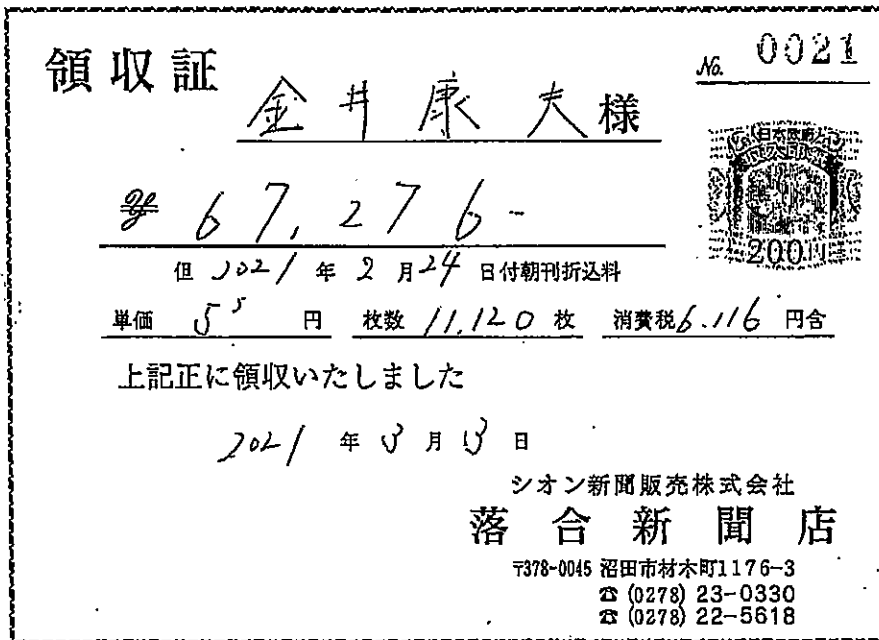 領収証
No. 0021
金井康夫様
日本政府
200円
¥67,276-
但 2021年2月24日付朝刊折込料
単価 5⁵ 円 枚数 11,120 枚 消費税 6.116 円含
上記正に領収いたしました
2021年3月13日
シオン新聞販売株式会社
落合新聞店
〒378-0045 沼田市材木町1176-3
☎ (0278) 23-0330
☎ (0278) 22-5618